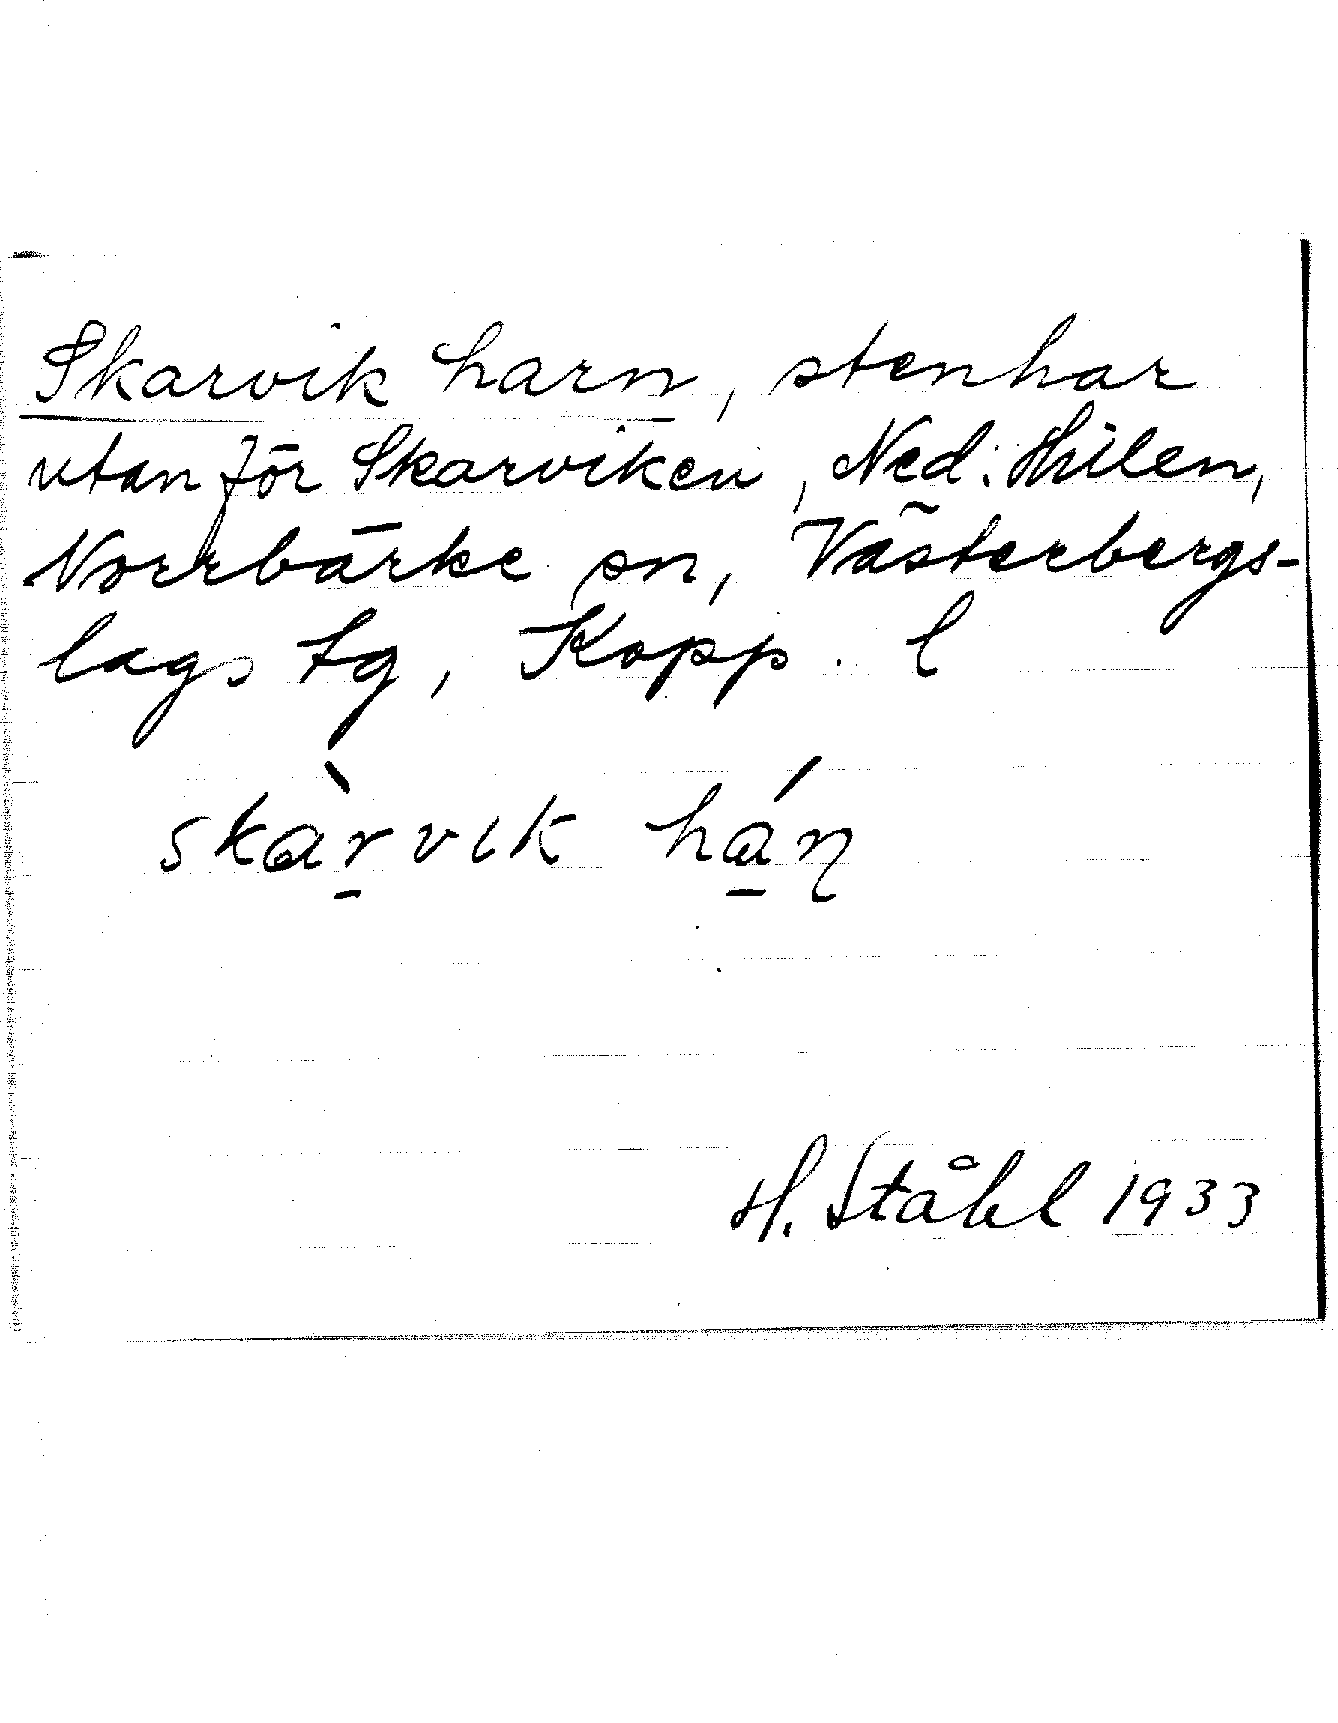 Skarvik harn, stenhar
utanför Skarviken, Ned. Hillen,
Norrbärke sn, Västerbergs-
lags tg, Kopp. l
skàrvik háṇ
H. Ståhl 1933